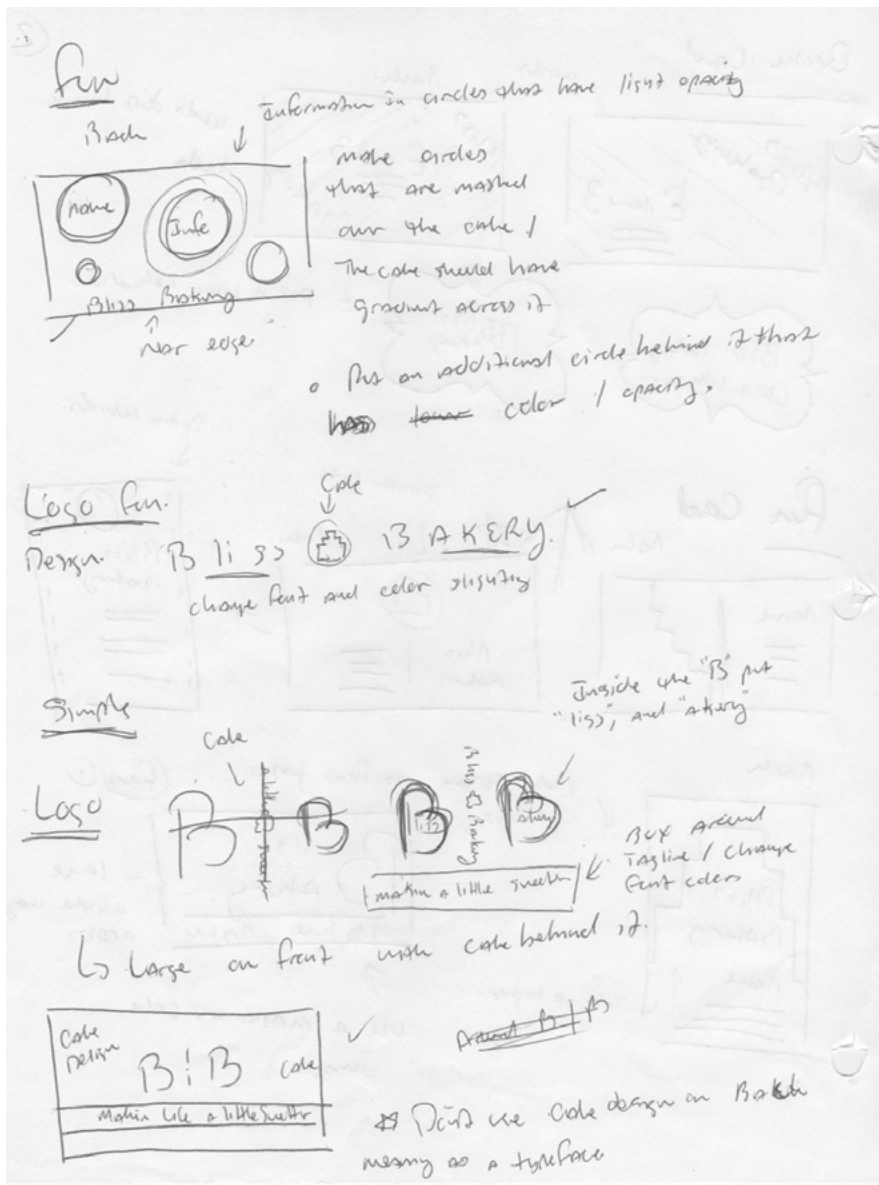 Fun
Back
Information in circles that have light opacity
Name
Info
Bliss Bakery
near edge
make circles
that are masked
over the cake /
The cake should have
gradient across it
Put an additional circle behind it that
has color / opacity.
Logo fun.
Design.
Cake
Bliss BAKERY.
change font and color slightly
Simple
Logo
Cake
B B
B B
liss
akery
Bliss Bakery
Inside the "B" put
"liss", and "akery"
makin a little sweeter
Box Around
Tagline / Change
font colors
Large on front with cake behind it.
Cake
Design
B B
cake
Makin life a little sweeter
Don't use cake design on Back
meaning as a typeface